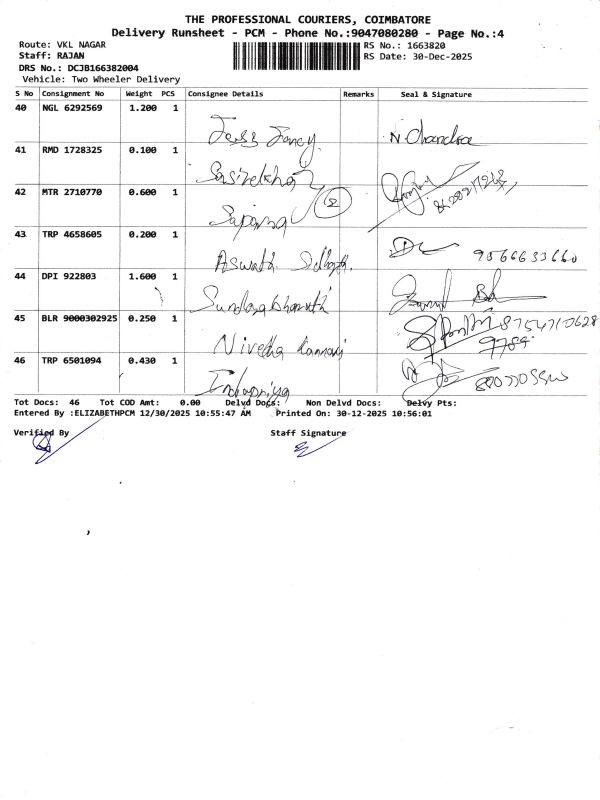 THE PROFESSIONAL COURIERS, COIMBATORE
Delivery Runsheet - PCM - Phone No.:9047080280 - Page No.:4
Route: VKL NAGAR
RS No.: 1663820
Staff: RAJAN
RS Date: 30-Dec-2025
DRS No.: DCJB166382004
Vehicle: Two Wheeler Delivery
S No Consignment No Weight PCS Consignee Details Remarks Seal & Signature
40 NGL 6292569 1.200 1
Jency N Chandra
41 RMD 1728325 0.100 1
Sasirekha
42 MTR 2710770 0.600 1
2
43 TRP 4658605 0.200 1
Aswath 9566633660
44 DPI 922803 1.600 1
45 BLR 9000302925 0.250 1
8754710628
Nivedha
46 TRP 6501094 0.430 1
Indupriya
Tot Docs: 46 Tot COD Amt: 0.00 Delvd Docs: Non Delvd Docs: Delvy Pts:
Entered By :ELIZABETHPCM 12/30/2025 10:55:47 AM Printed On: 30-12-2025 10:56:01
Verified By Staff Signature